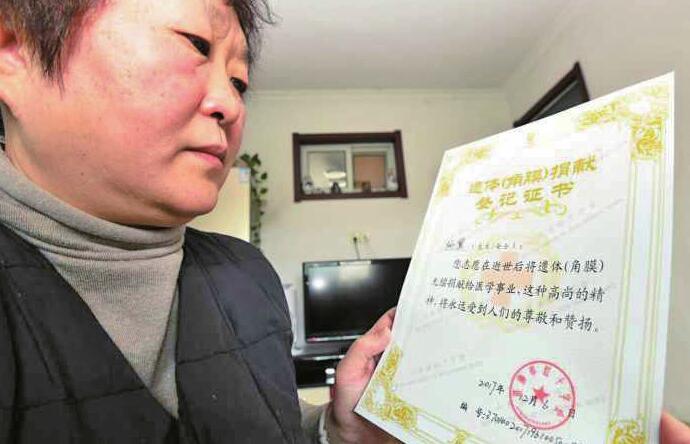 遗体(角膜)捐献
登记证书
(先生/女士):
您志愿在逝世后将遗体(角膜)
无偿捐献给医学事业,这种高尚的精
神,将永远受到人们的尊敬和赞扬。
2017年12月6日
编号: